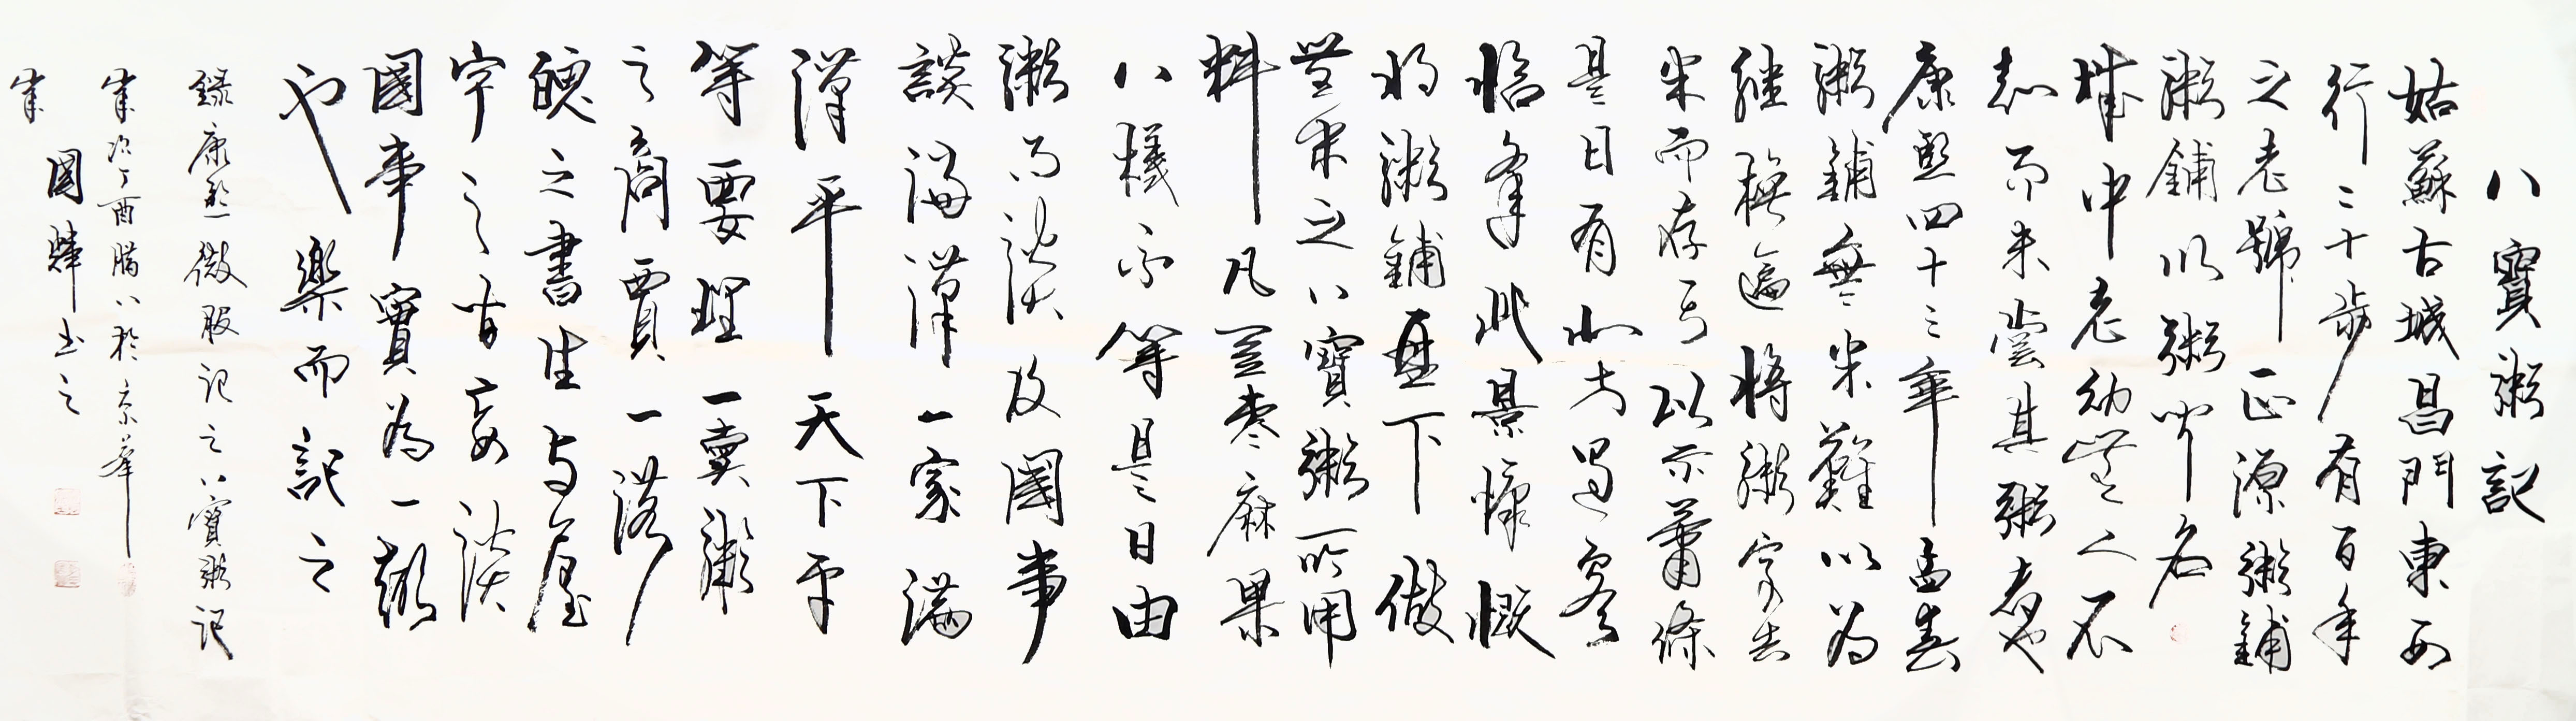 八寶粥記
姑蘇古城昌門東西
行二十步有百年
之老號正源粥鋪
粥鋪以粥聞名
城中老幼無人不
知而未嘗其粥者也
康熙四十三年孟春
粥鋪無米難以為
繼撫遍將粥字去
米而存弓以示蕭條
是日有北方過客
臨奎此景慷慨
將粥鋪盤下做
無米之八寶粥所用
料凡豆棗麻果
八樣不等是日由
粥而談及國事
談滿漢一家滿
漢平天下平
等要埋一賣粥
之商賈一落
魄之書生与屋
宇之前妄談
國事實為一粥
也樂而記之
錄康熙微服記之八寶粥記
歲次丁酉臘八於京華
國輝书之
歲